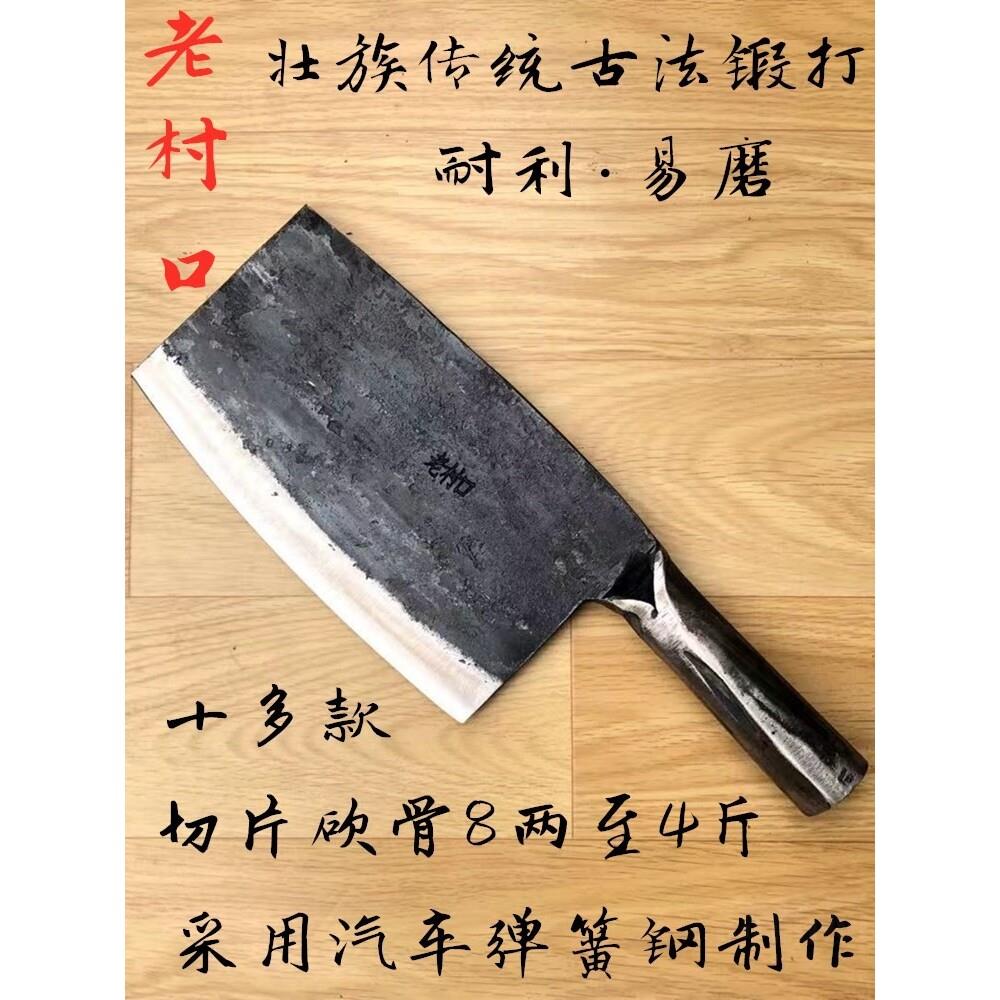 老村口
壮族传统古法锻打
耐利·易磨
老村口
十多款
切片砍骨8两至4斤
采用汽车弹簧钢制作